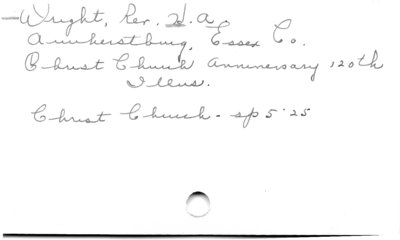 Wright, Rev. H.a.
Amherstburg, Essex Co.
Christ Church anniversary 120th
Illus.
Christ Church - sp 5 '25